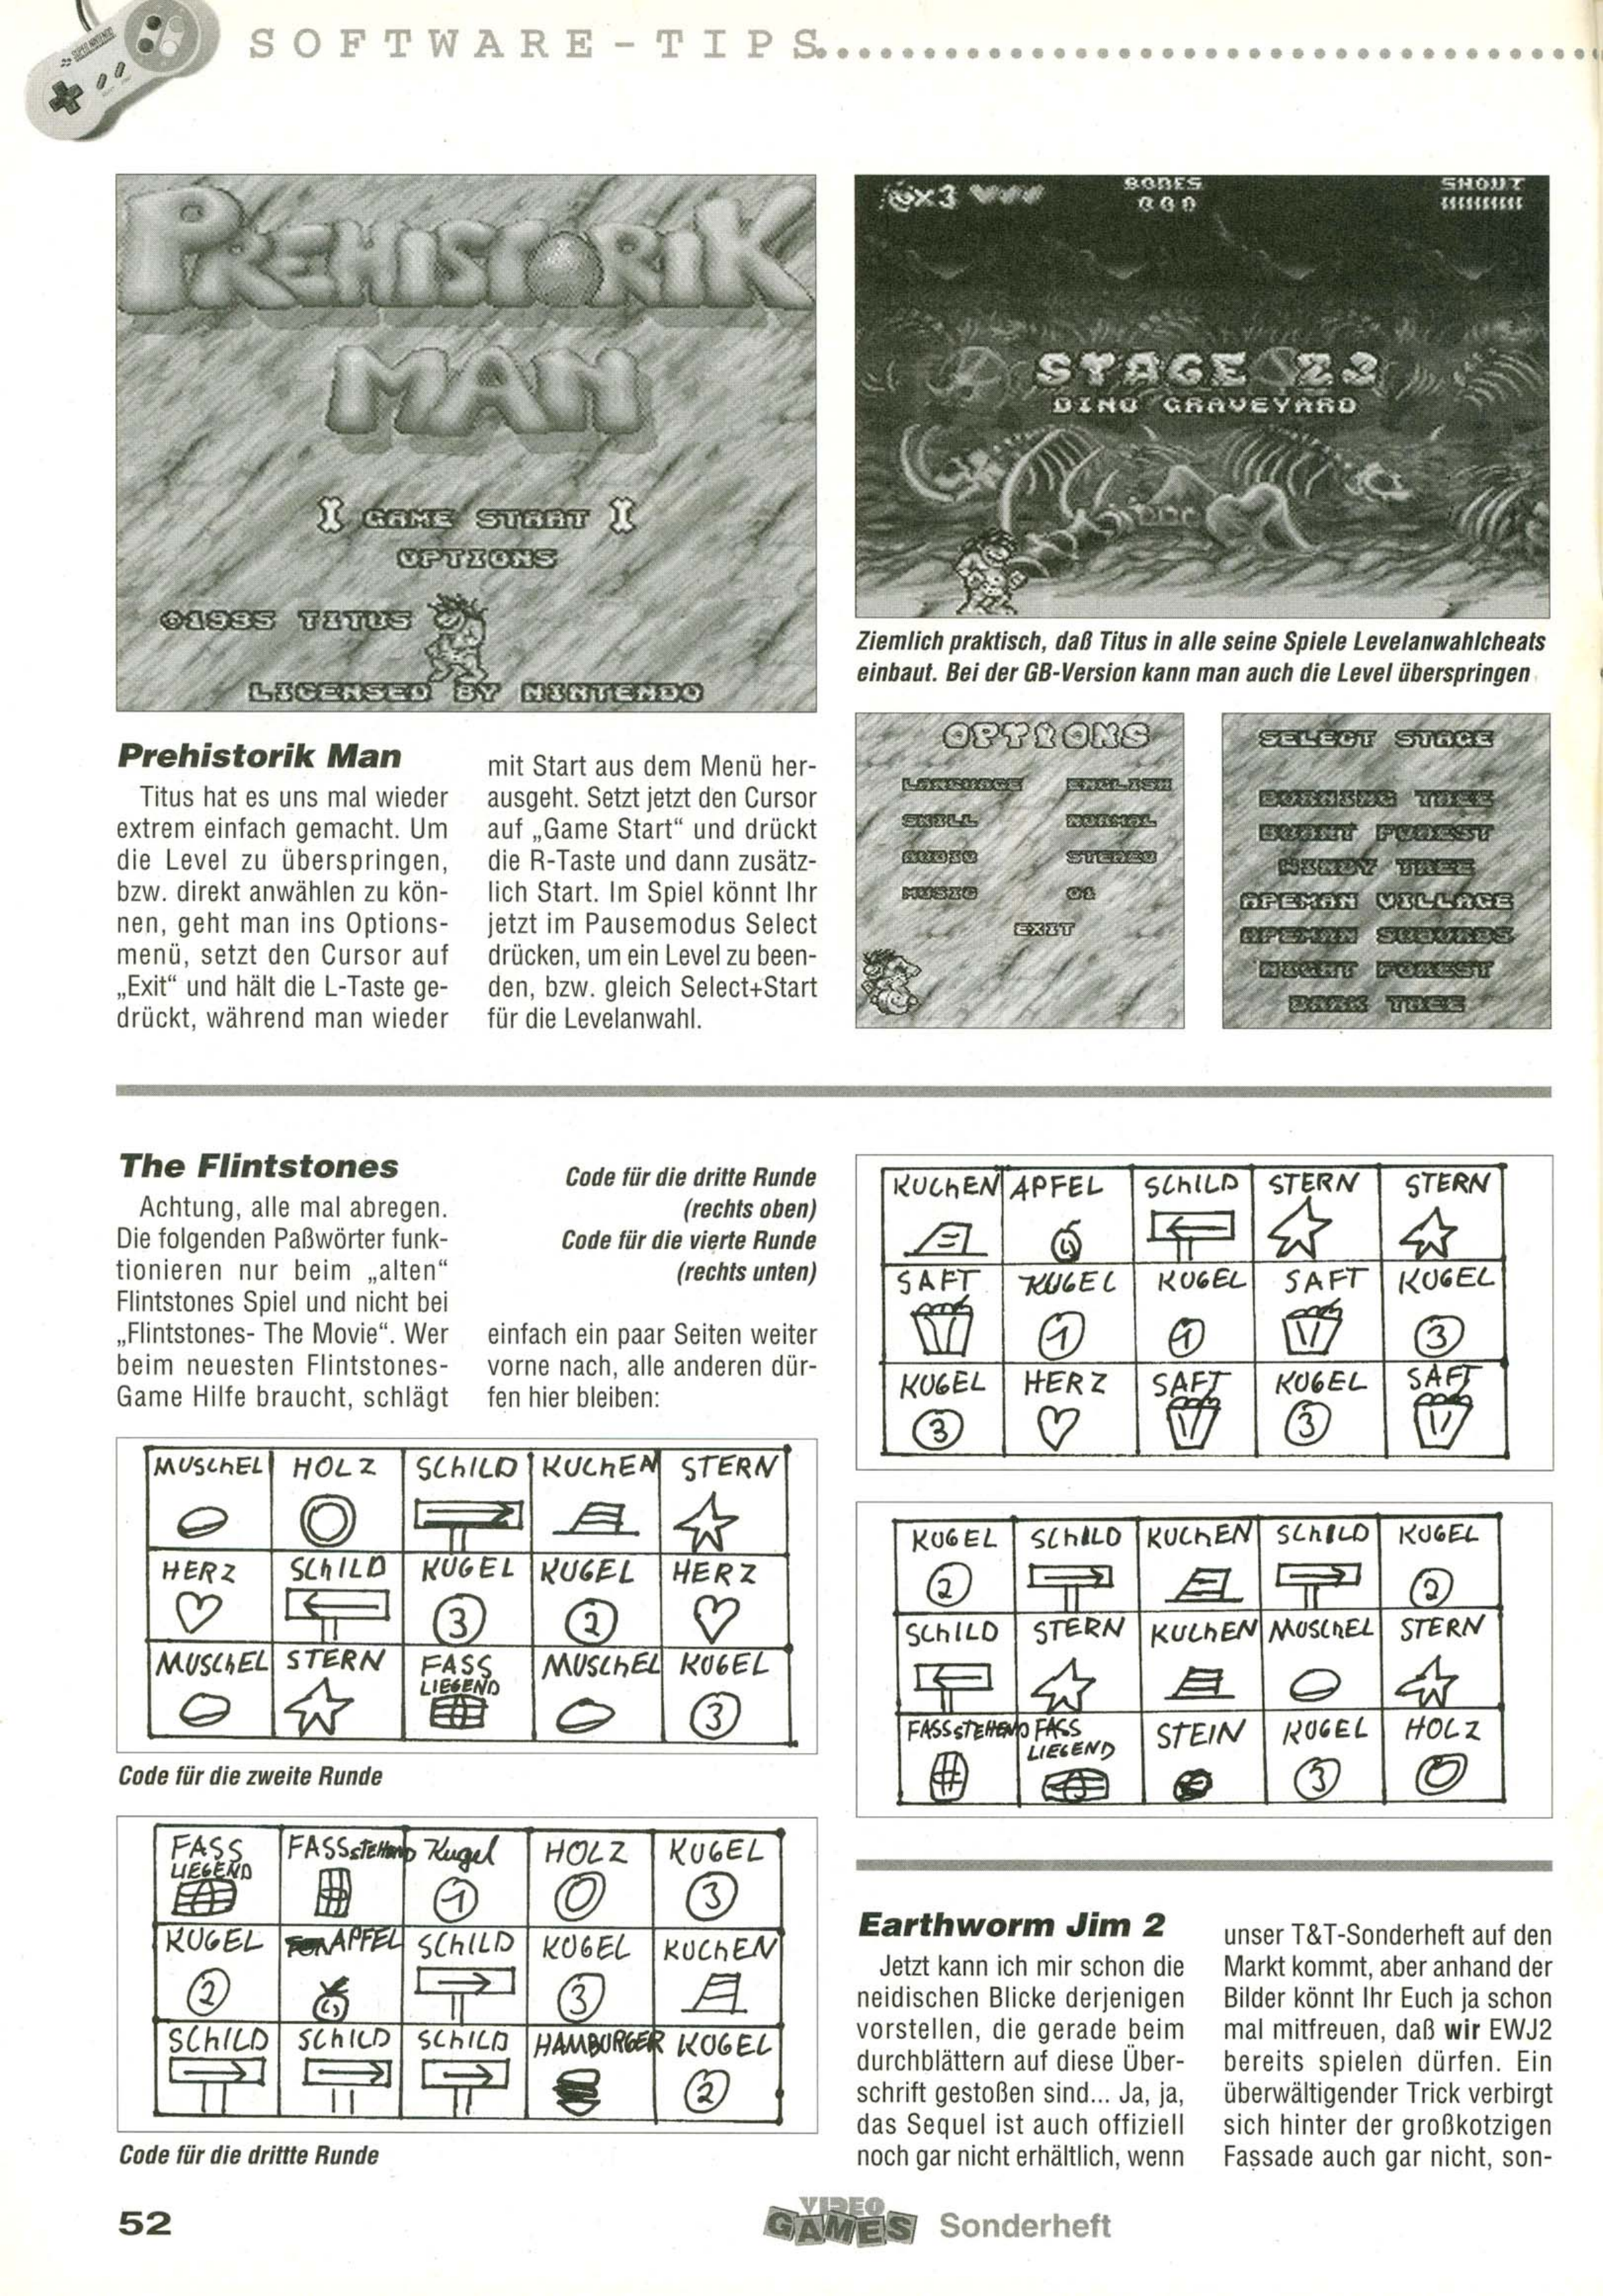 SUPER NINTENDO
SOFTWARE-TIPS
PREHISTORIK
MAN
GAME START
OPTIONS
©1995 TITUS
LICENSED BY NINTENDO
x3
BONES
000
SHOUT
STAGE 23
DINO GRAVEYARD
Ziemlich praktisch, daß Titus in alle seine Spiele Levelanwahlcheats
einbaut. Bei der GB-Version kann man auch die Level überspringen
Prehistorik Man
Titus hat es uns mal wieder
extrem einfach gemacht. Um
die Level zu überspringen,
bzw. direkt anwählen zu kön-
nen, geht man ins Options-
menü, setzt den Cursor auf
„Exit“ und hält die L-Taste ge-
drückt, während man wieder
mit Start aus dem Menü her-
ausgeht. Setzt jetzt den Cursor
auf „Game Start“ und drückt
die R-Taste und dann zusätz-
lich Start. Im Spiel könnt Ihr
jetzt im Pausemodus Select
drücken, um ein Level zu been-
den, bzw. gleich Select+Start
für die Levelanwahl.
OPTIONS
LANGUAGE ENGLISH
SKILL NORMAL
AUDIO STEREO
MUSIC 01
EXIT
SELECT STAGE
BURNING TREE
BURNT FOREST
WINDY TREE
APEMAN VILLAGE
APEMAN SUBURBS
NIGHT FOREST
DARK TREE
The Flintstones
Achtung, alle mal abregen.
Die folgenden Paßwörter funk-
tionieren nur beim „alten“
Flintstones Spiel und nicht bei
„Flintstones- The Movie“. Wer
beim neuesten Flintstones-
Game Hilfe braucht, schlägt
Code für die dritte Runde
(rechts oben)
Code für die vierte Runde
(rechts unten)
einfach ein paar Seiten weiter
vorne nach, alle anderen dür-
fen hier bleiben:
MUSCHEL HOLZ SCHILD KUCHEN STERN
HERZ SCHILD KUGEL KUGEL HERZ
3 2
MUSCHEL STERN FASS MUSCHEL KUGEL
LIEGEND
3
Code für die zweite Runde
FASS FASS STEHEND Kugel HOLZ KUGEL
LIEGEND
1 3
KUGEL APFEL SCHILD KUGEL KUCHEN
2 3
SCHILD SCHILD SCHILD HAMBURGER KUGEL
2
Code für die drittte Runde
KUCHEN APFEL SCHILD STERN STERN
SAFT KUGEL KUGEL SAFT KUGEL
1 1 3
KUGEL HERZ SAFT KUGEL SAFT
3 3
KUGEL SCHILD KUCHEN SCHILD KUGEL
2 2
SCHILD STERN KUCHEN MUSCHEL STERN
FASS STEHEND FASS STEIN KUGEL HOLZ
LIEGEND
3
Earthworm Jim 2
Jetzt kann ich mir schon die
neidischen Blicke derjenigen
vorstellen, die gerade beim
durchblättern auf diese Über-
schrift gestoßen sind... Ja, ja,
das Sequel ist auch offiziell
noch gar nicht erhältlich, wenn
unser T&T-Sonderheft auf den
Markt kommt, aber anhand der
Bilder könnt Ihr Euch ja schon
mal mitfreuen, daß wir EWJ2
bereits spielen dürfen. Ein
überwältigender Trick verbirgt
sich hinter der großkotzigen
Fassade auch gar nicht, son-
52
VIDEO
GAMES Sonderheft